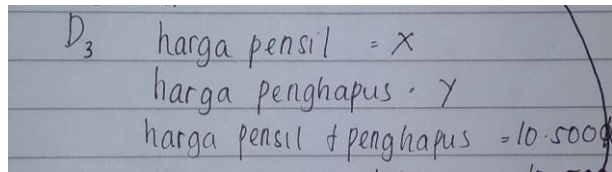 D3 harga pensil = X
harga penghapus . Y
harga pensil + penghapus = 10.500